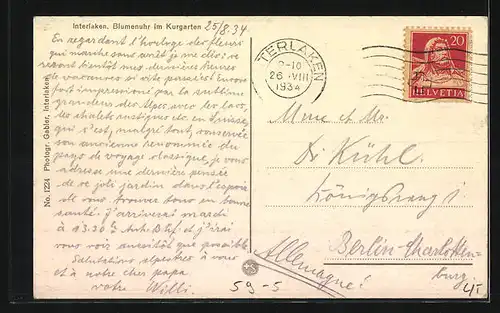 Interlaken. Blumenuhr im Kurgarten 25/8.34
En regardant l'horloge des fleurs
qui marche sans arrêt je me dis: ce
seront bientôt mes dernières heures
de vacances si vite passées! Encore
fort impressioné par la sublime
grandeur des Alpes avec les lacs,
des chalets rustiques etc. en Suisse,
qui s'est, malgré tout, conservée
son ancienne renommée du
pays de voyage classique, je vous
adresse une dernière pensée
de ce joli jardin dans l'espoir
de vous trouver bous en bonne
santé. J'arriverai mardi
à 13.30 h Anh. Bhf. et j'irai
vous voir aussitôt que possible.
Salutations alpestres à vous
et à notre cher papa
votre Willi.
No. 1224 Photogr. Gabler, Interlaken
TERLAKEN
2-10
26.VIII
1934
20
HELVETIA
Mme et Mr.
Dr. Kühl.
Königsweg
Berlin-Charlotten-
burg.
Allemagne!
59-5